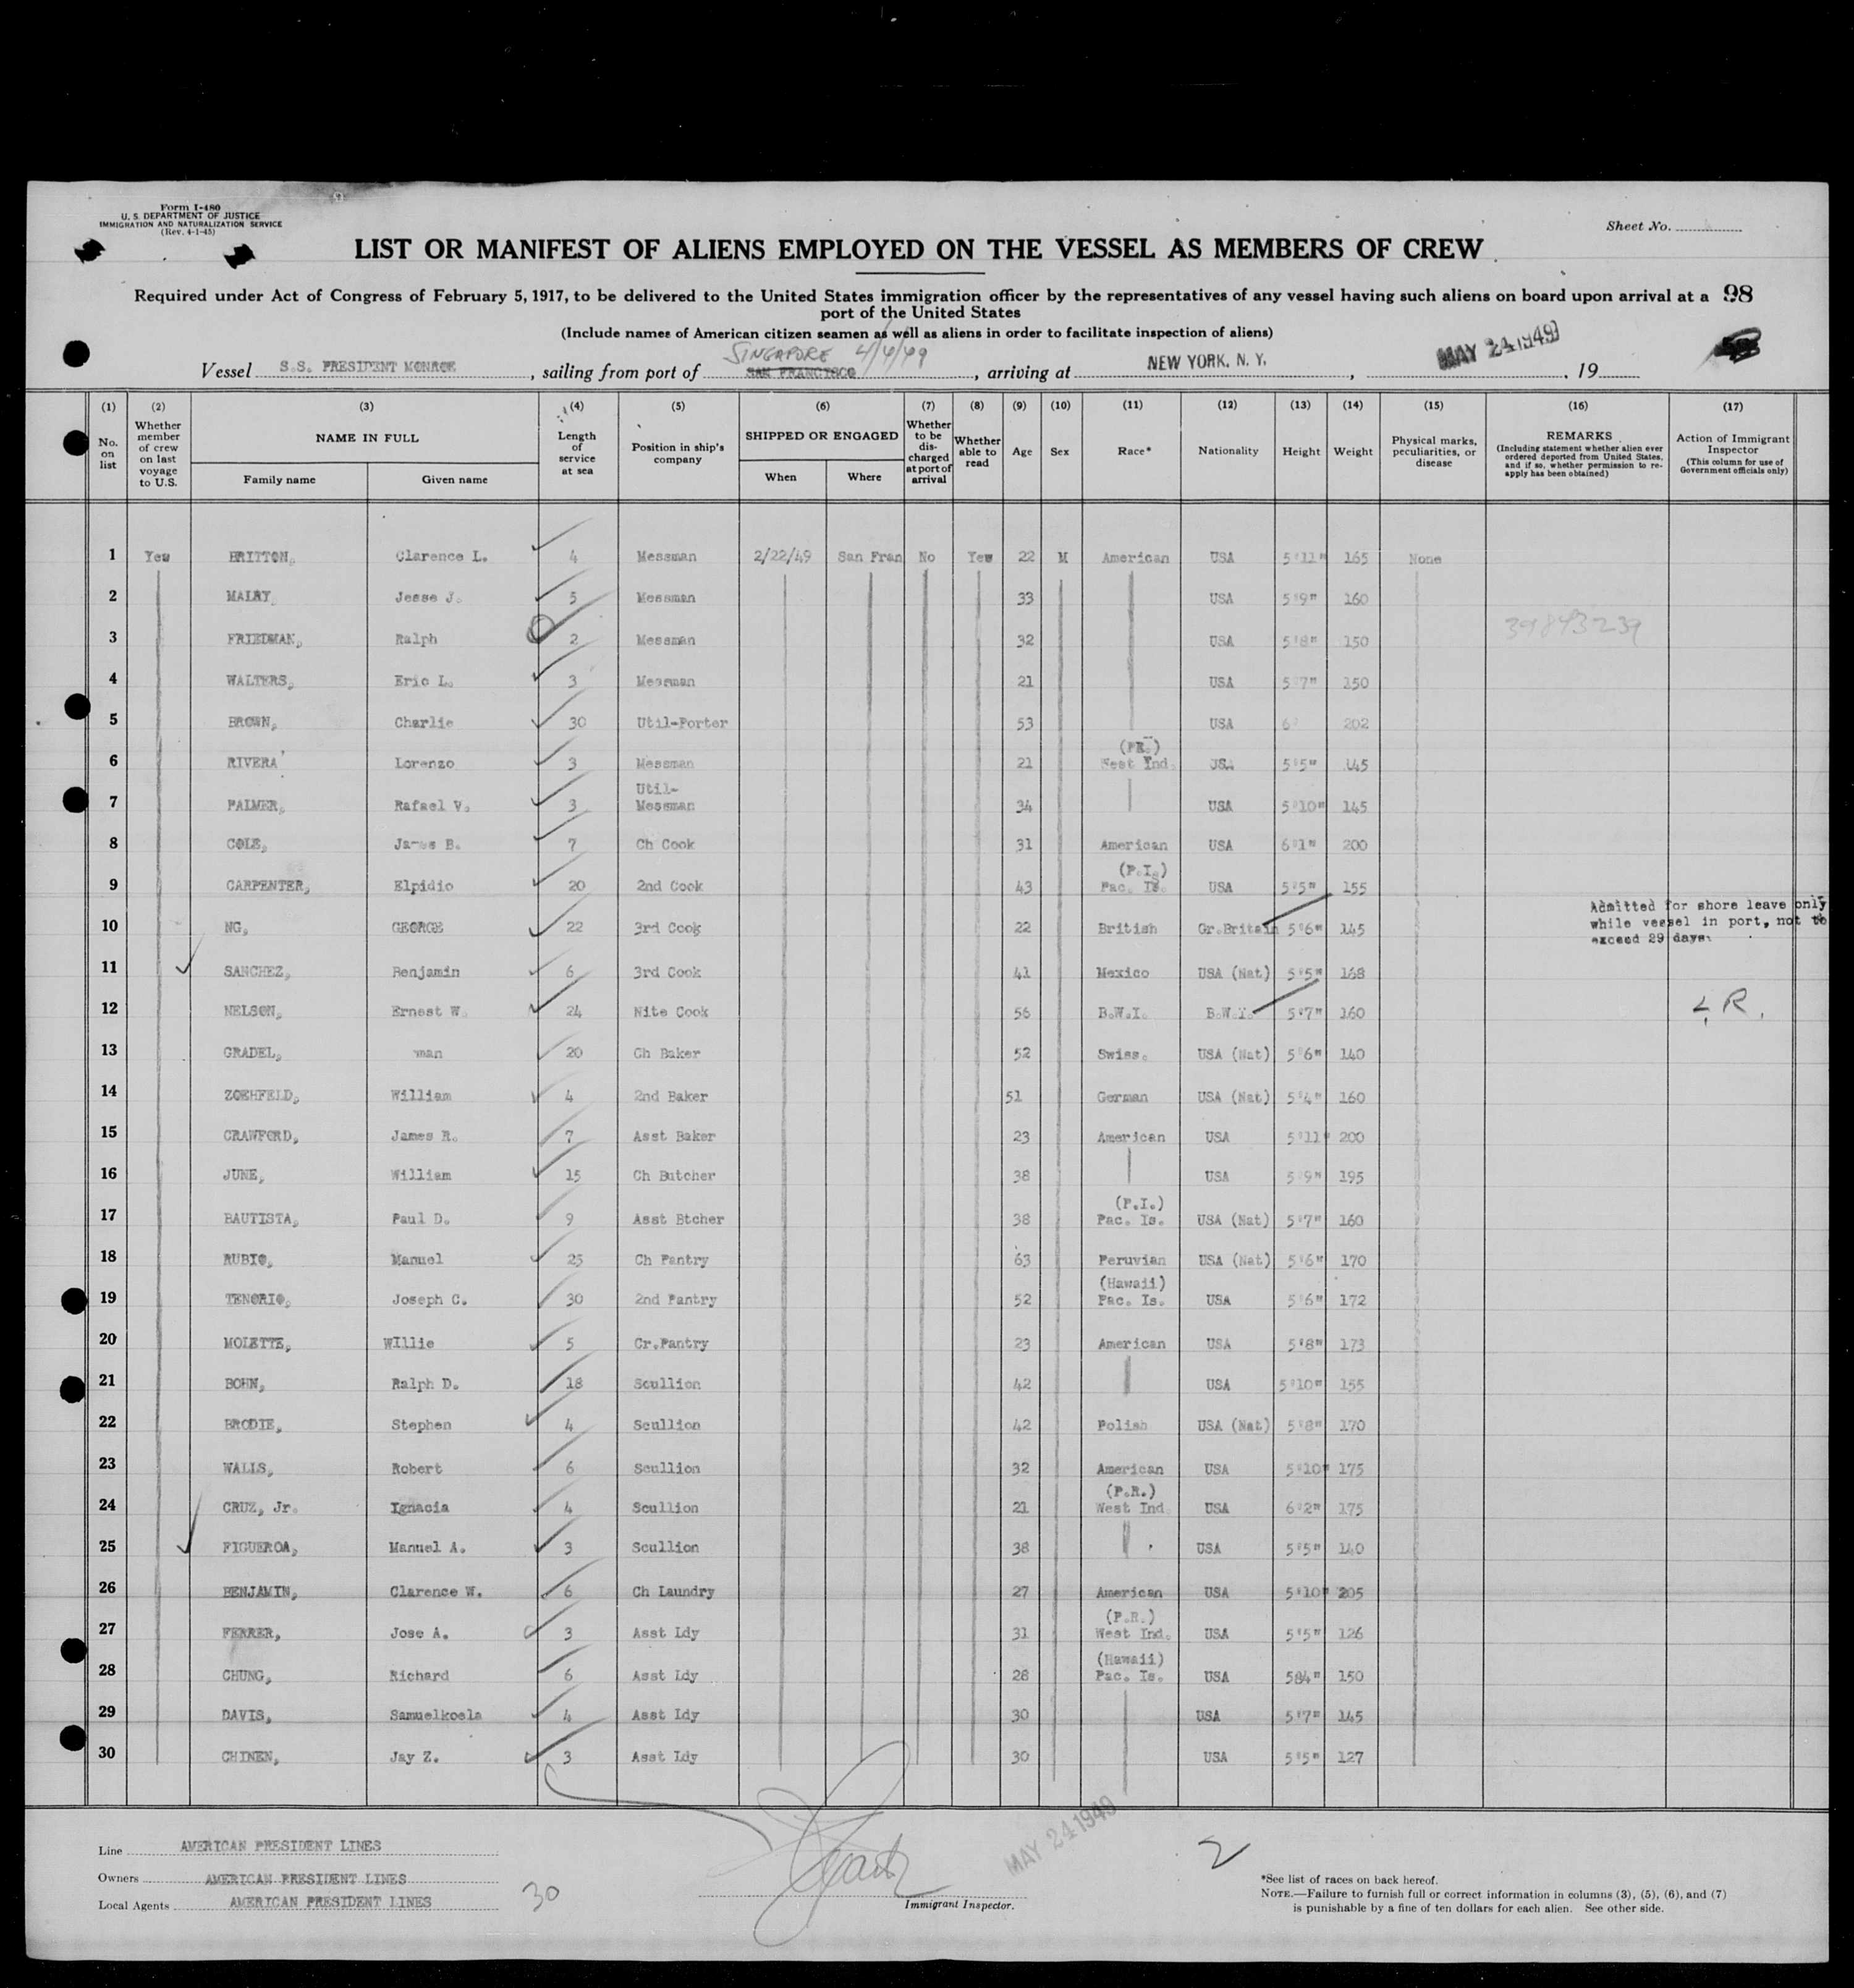 Form I-480
U. S. DEPARTMENT OF JUSTICE
IMMIGRATION AND NATURALIZATION SERVICE
(Rev. 4-1-45)
Sheet No.
LIST OR MANIFEST OF ALIENS EMPLOYED ON THE VESSEL AS MEMBERS OF CREW
Required under Act of Congress of February 5, 1917, to be delivered to the United States immigration officer by the representatives of any vessel having such aliens on board upon arrival at a 98
port of the United States
(Include names of American citizen seamen as well as aliens in order to facilitate inspection of aliens)
SINGAPORE 4/4/49
Vessel S.S. PRESIDENT MONROE, sailing from port of SAN FRANCISCO, arriving at NEW YORK, N. Y., MAY 24 1949, 19
(1) (2) (3) (4) (5) (6) (7) (8) (9) (10) (11) (12) (13) (14) (15) (16) (17)
No. on list Whether member of crew on last voyage to U.S. NAME IN FULL Family name Given name Length of service at sea Position in ship's company SHIPPED OR ENGAGED When Where Whether to be discharged at port of arrival Whether able to read Age Sex Race* Nationality Height Weight Physical marks, peculiarities, or disease REMARKS (Including statement whether alien ever ordered deported from United States, and if so, whether permission to re-apply has been obtained) Action of Immigrant Inspector (This column for use of Government officials only)
1 Yew BRITTON, Clarence L. 4 Messman 2/22/49 San Fran No Yew 22 M American USA 5'11" 165 None
2 MALRY, Jesse J. 5 Messman 33 USA 5'9" 160
3 FRIEDMAN, Ralph 2 Messman 32 USA 5'8" 150 39843239
4 WALTERS, Eric L. 3 Messman 21 USA 5'7" 150
5 BROWN, Charlie 30 Util-Porter 53 USA 6' 202
6 RIVERA Lorenzo 3 Messman 21 (PR.) West Ind. USA 5'5" 145
7 PALMER, Rafael V. 3 Util-Messman 34 USA 5'10" 145
8 COLE, James B. 7 Ch Cook 31 American USA 6'1" 200
9 CARPENTER, Elpidio 20 2nd Cook 43 (P.I.) Pac. Is. USA 5'5" 155
10 NG, GEORGE 22 3rd Cook 22 British Gr.Britain 5'6" 145 Admitted for shore leave only while vessel in port, not to exceed 29 days.
11 SANCHEZ, Benjamin 6 3rd Cook 41 Mexico USA (Nat) 5'5" 168
12 NELSON, Ernest W. 24 Nite Cook 56 B.W.I. B.W.I. 5'7" 160 L.R.
13 GRADEL, man 20 Ch Baker 52 Swiss. USA (Nat) 5'6" 140
14 ZOEHFELD, William 4 2nd Baker 51 German USA (Nat) 5'4" 160
15 CRAWFORD, James R. 7 Asst Baker 23 American USA 5'11" 200
16 JUNE, William 15 Ch Butcher 38 USA 5'9" 195
17 BAUTISTA, Paul D. 9 Asst Btcher 38 (P.I.) Pac. Is. USA (Nat) 5'7" 160
18 RUBIO, Manuel 25 Ch Pantry 63 Peruvian USA (Nat) 5'6" 170
19 TENORIO, Joseph C. 30 2nd Pantry 52 (Hawaii) Pac. Is. USA 5'6" 172
20 MOLETTE, WIllie 5 Cr.Pantry 23 American USA 5'8" 173
21 BOHN, Ralph D. 18 Scullion 42 USA 5'10" 155
22 BRODIE, Stephen 4 Scullion 42 Polish USA (Nat) 5'8" 170
23 WALLS, Robert 6 Scullion 32 American USA 5'10" 175
24 CRUZ, Jr. Ignacia 4 Scullion 21 (P.R.) West Ind. USA 6'2" 175
25 FIGUEROA, Manuel A. 3 Scullion 38 USA 5'5" 140
26 BENJAMIN, Clarence W. 6 Ch Laundry 27 American USA 5'10" 205
27 FERRER, Jose A. 3 Asst Ldy 31 (P.R.) West Ind. USA 5'5" 126
28 CHUNG, Richard 6 Asst Ldy 28 (Hawaii) Pac. Is. USA 5'4" 150
29 DAVIS, Samuelkoela 4 Asst Ldy 30 USA 5'7" 145
30 CHINEN, Jay Z. 3 Asst Ldy 30 USA 5'5" 127
Line AMERICAN PRESIDENT LINES
Owners AMERICAN PRESIDENT LINES
Local Agents AMERICAN PRESIDENT LINES
30
MAY 24 1949
Immigrant Inspector.
2
*See list of races on back hereof.
NOTE.—Failure to furnish full or correct information in columns (3), (5), (6), and (7)
is punishable by a fine of ten dollars for each alien. See other side.